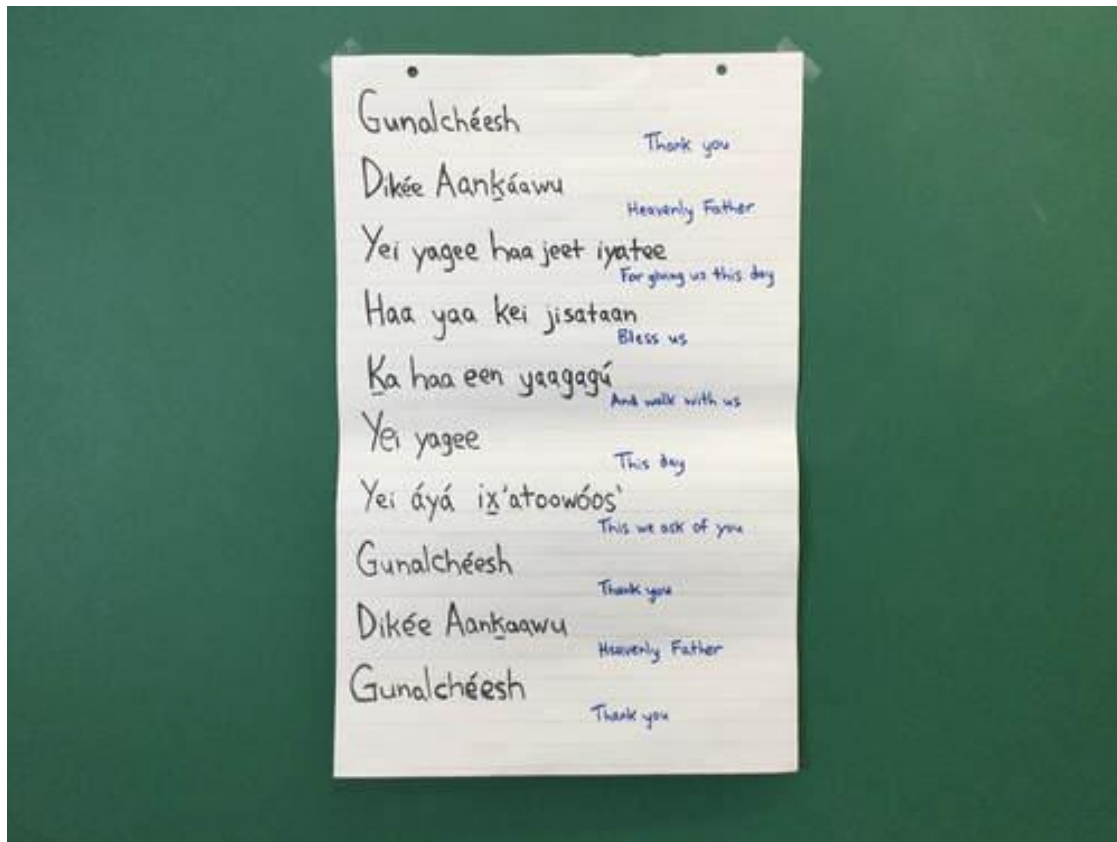 Gunalchéesh
Thank you
Dikée Aanḵáawu
Heavenly Father
Yei yagee haa jeet iyatee
For giving us this day
Haa yaa kei jisataan
Bless us
Ḵa haa een yaagagú
And walk with us
Yei yagee
This day
Yei áyá ix̱'atoowóos'
This we ask of you
Gunalchéesh
Thank you
Dikée Aanḵaawu
Heavenly Father
Gunalchéesh
Thank you